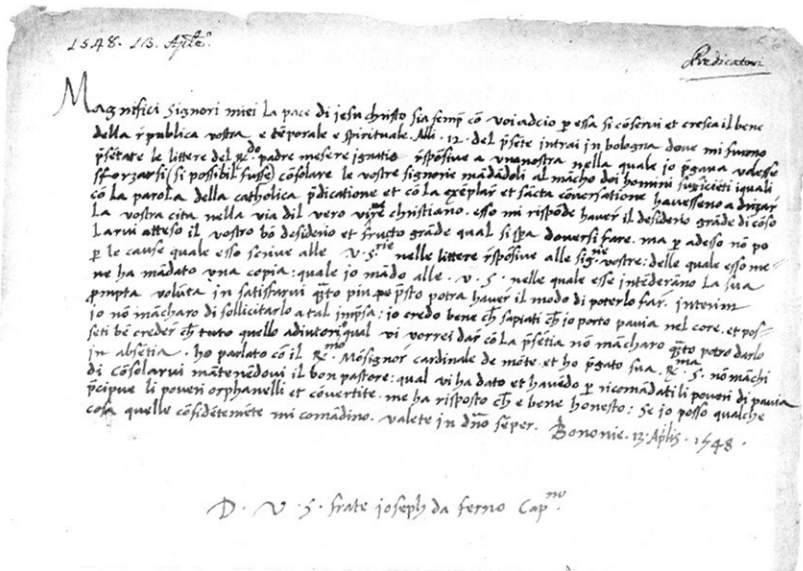 1548. 13. Aprile.
Predicatori
Magnifici Signori miei La pace di jesu christo sia semp cõ voi adcio p essa si cõservi et cresca il bene
della rpublica vostra e tẽporale e spirituale. Alli .12. del psẽte intrai jn bologna dove mi furno
psẽtate le littere del Rdo padre mesere ignatio rsposive a una nostra nella quale jo pgava volesse
sforzarsi (si possibil fusse) cõsolare le vostre signorie mãdãdoli al mãcho doi homini suficiẽti iquali
cõ la parola della catholica pdicatione et cõ la exẽplar et sãcta cõversatione havesseno a drizar
La vostra cita nella via dil vero christiano. esso mi rispõde haver il desiderio grãde di cõso
larvi atteso il vostro bõ desiderio et fructo grãde qual si spa doversi fare. ma p adesso nõ po
p le cause quale esso scrive alle V. S.rie nelle littere rsposive alle sig.ne vestre: delle quale esso me
ne ha mãdato una copia: quale jo mãdo alle . v . s . nelle quale esse intẽderãno La sua
prompta volũta in satisfarvi qto piu psto potra haver il modo di poterlo far. jnterim
jo nõ mãcharo di sollicitarlo a tal impsa: jo credo bene ch sapiati ch jo porto pavia nel core. et pos-
seti bẽ creder ch tuto quello adiutorio qual vi vorrei dar cõ la psẽtia nõ mãcharo qto potro darlo
jn absẽtia . ho parlato cõ il Rmo Mõsignor cardinale de mõte. et ho pgato sua Rma S. nõ mãchi
di cõsolarvi mãtenẽdovi il bon pastore: qual vi ha dato et havẽdo p ricomãdati li poveri di pavia
pcipue li poveri orphanelli et cõvertite. me ha risposto ch e bene honesto: Se jo posso qualche
cosa quelle cõfidẽtemẽte mi comãdino. valete jn dño sẽper. Bononie. 13 Aplis . 1548.
D. V. S. frate joseph da ferno Cap.no